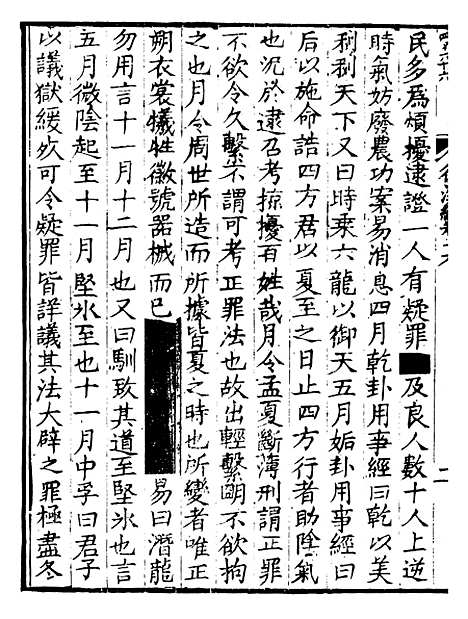 民多為煩擾逮證一人有疑罪 及良人數十人上逆
時氣妨廢農功案易消息四月乾卦用事經曰乾以美
利利天下又曰時乘六龍以御天五月姤卦用事經曰
后以施命誥四方君以夏至之日止四方行者助陰氣
也況於逮召考掠擾百姓哉月令孟夏斷薄刑謂正罪
不欲令久繫不謂可考正罪法也故出輕繫明不欲拘
之也月令周世所造而所據皆夏之時也所變者唯正
朔衣裳犧牲徽號器械而已 易曰潛龍
勿用言十一月十二月也又曰馴致其道至堅氷也言
五月微陰起至十一月堅氷至也十一月中孚曰君子
以議獄緩死可令疑罪皆詳議其法大辟之罪極盡冬
二